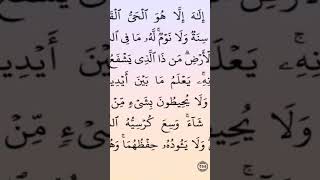 إِلَٰهَ إِلَّا هُوَ ٱلْحَىُّ ٱلْقَ
سِنَةٌ وَلَا نَوْمٌ ۚ لَّهُۥ مَا فِى ٱل
لْأَرْضِ ۗ مَن ذَا ٱلَّذِى يَشْفَعُ
نِهِۦ ۚ يَعْلَمُ مَا بَيْنَ أَيْدِي
وَلَا يُحِيطُونَ بِشَىْءٍ مِّنْ
شَآءَ ۚ وَسِعَ كُرْسِيُّهُ ٱل
وَلَا يَـُٔودُهُۥ حِفْظُهُمَا ۚ وَهُ